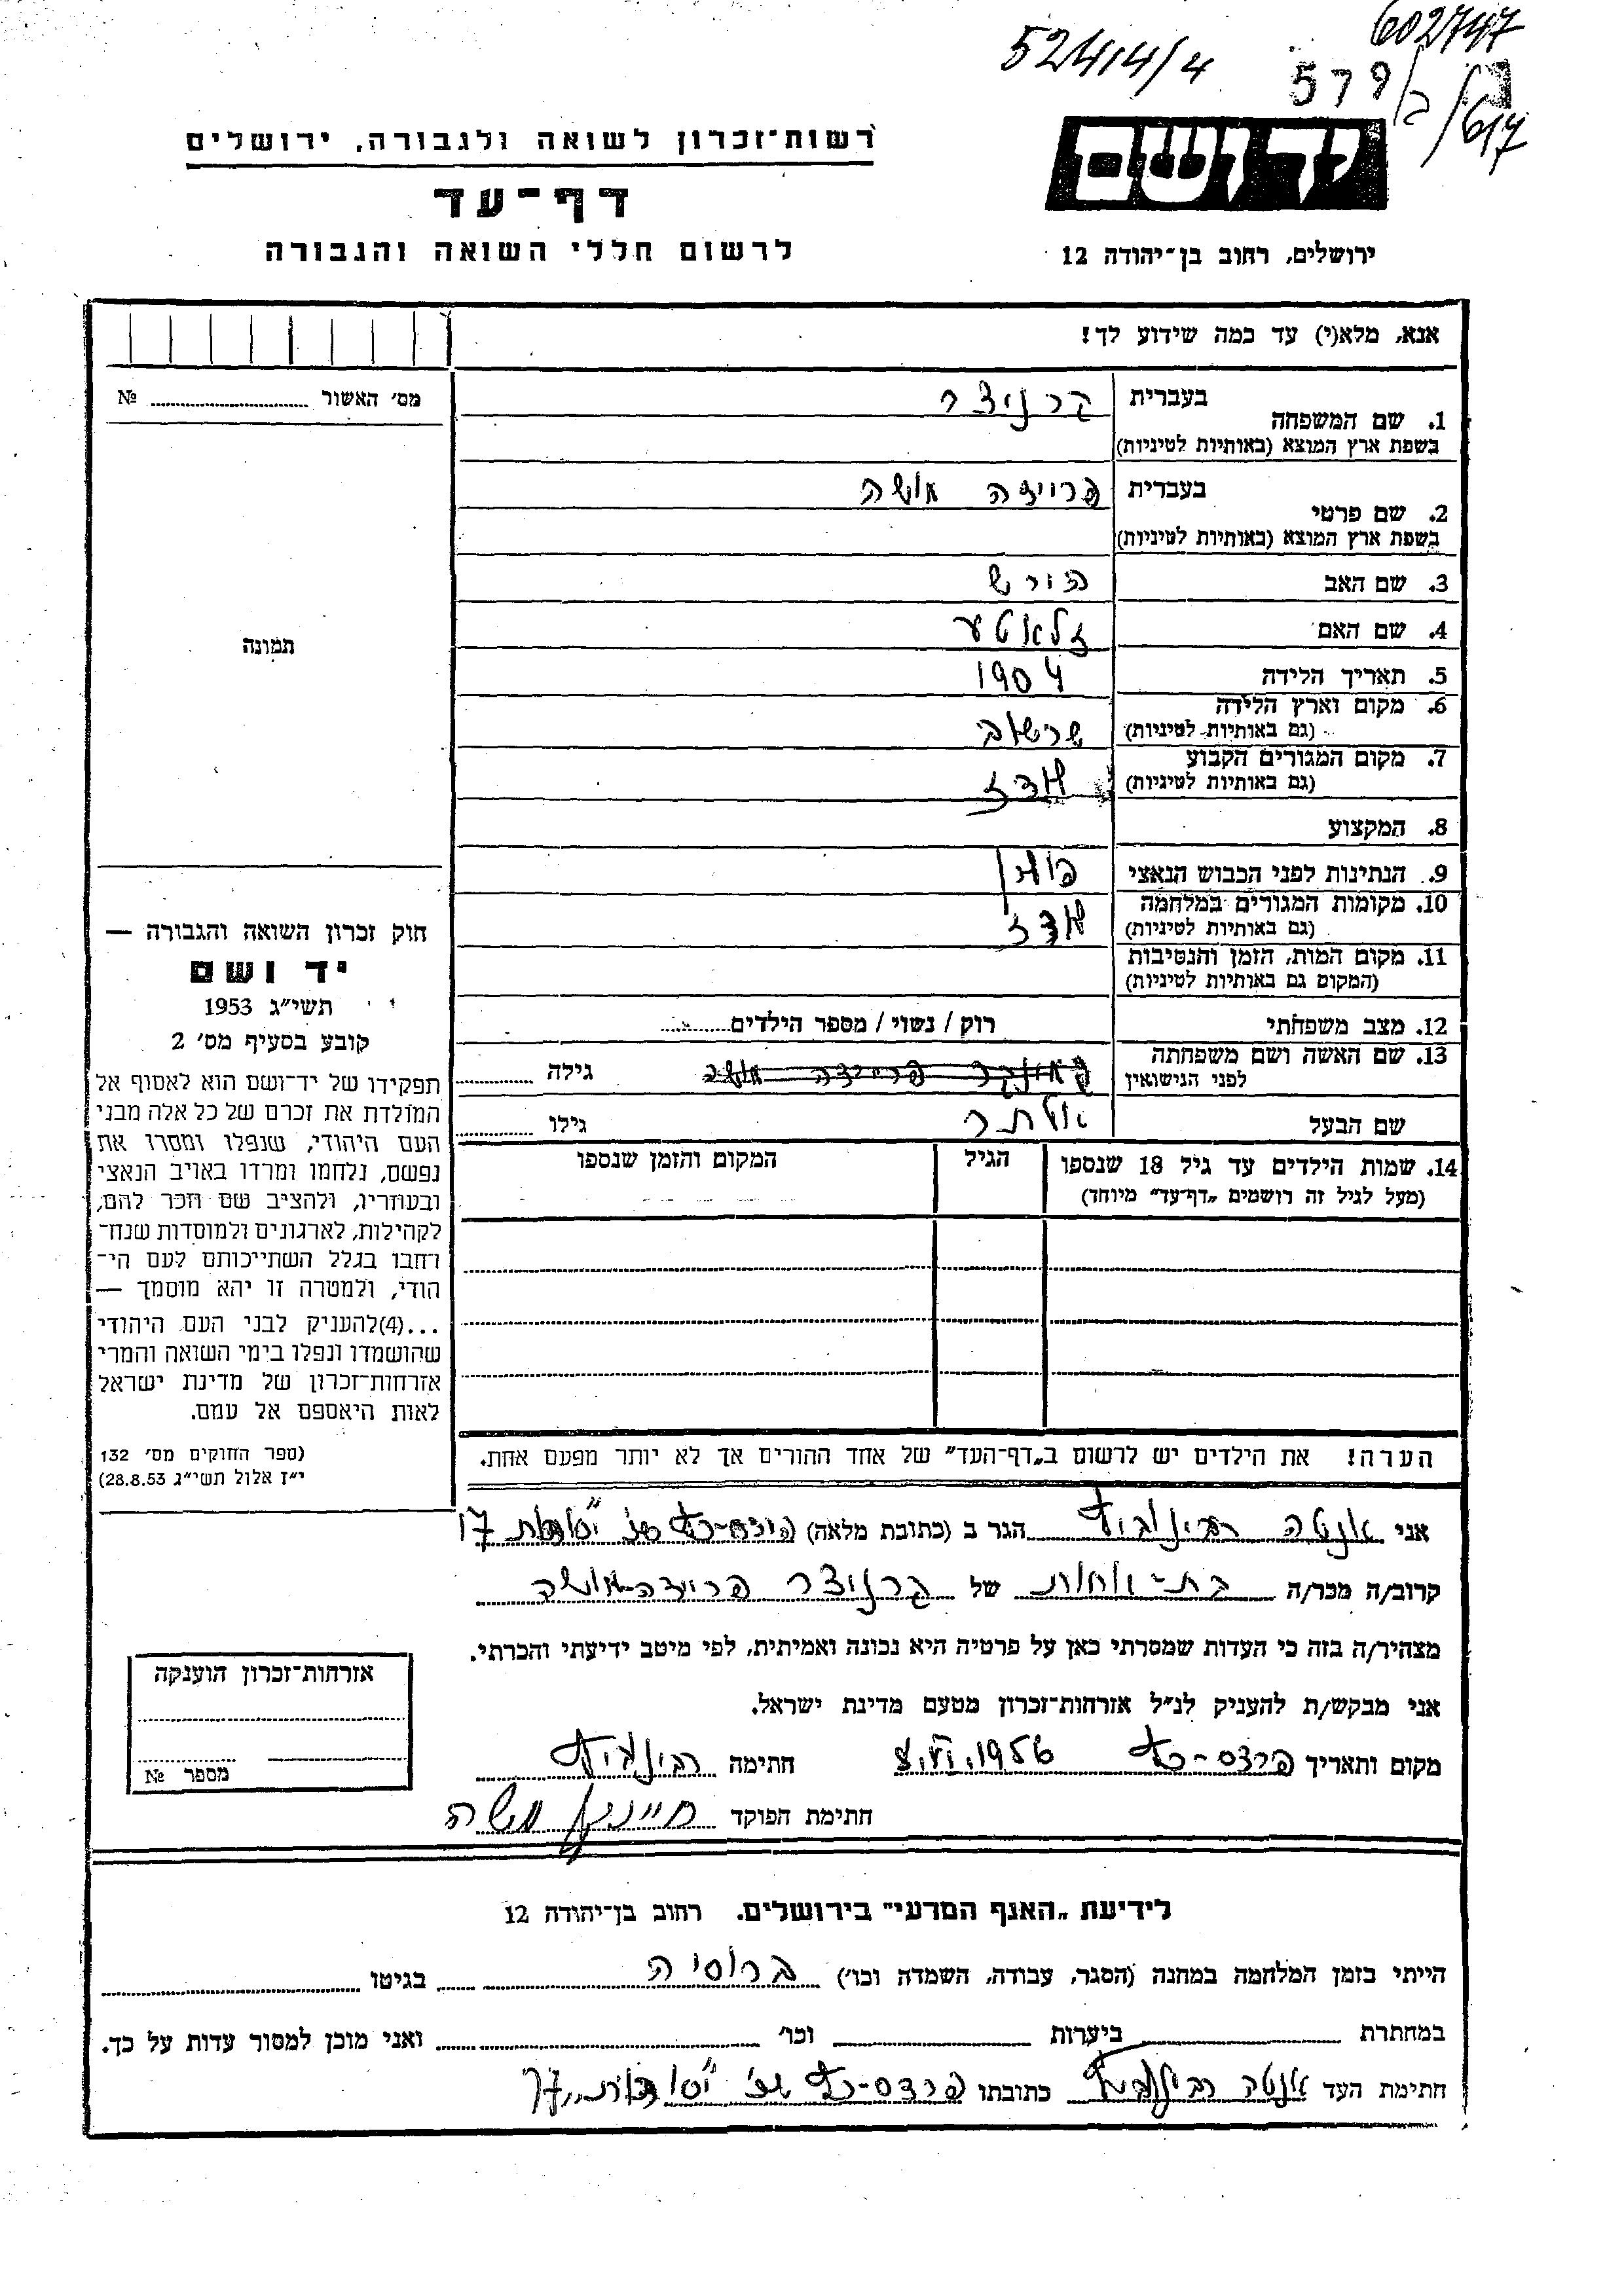 602747
52414/4
579/ב/617
רשות־זכרון לשואה ולגבורה, ירושלים
יד ושם
דף־עד
לרשום חללי השואה והגבורה
ירושלים, רחוב בן־יהודה 12
אנא, מלא(י) עד כמה שידוע לך!
מס׳ האשור № ........
1. שם המשפחה
בעברית קרניצר
בשפת ארץ המוצא (באותיות לטיניות)
2. שם פרטי
בעברית פריידה אושה
בשפת ארץ המוצא (באותיות לטיניות)
3. שם האב הורש
4. שם האם זלאטע
תמונה
5. תאריך הלידה 1904
6. מקום וארץ הלידה
(גם באותיות לטיניות) שרשוב
7. מקום המגורים הקבוע
(גם באותיות לטיניות) לודז
8. המקצוע
9. הנתינות לפני הכבוש הנאצי פולין
10. מקומות המגורים במלחמה
(גם באותיות לטיניות) לודז
11. מקום המות, הזמן והנסיבות
(המקום גם באותיות לטיניות)
12. מצב משפחתי רוק / נשוי / מספר הילדים........
13. שם האשה ושם משפחתה
לפני הנישואין פריידה אושה גילה ........
שם הבעל אלתר גילו ........
14. שמות הילדים עד גיל 18 שנספו
(מעל לגיל זה רושמים „דף־עד” מיוחד)
הגיל
המקום והזמן שנספו
הערה! את הילדים יש לרשום ב„דף־העד” של אחד ההורים אך לא יותר מפעם אחת.
חוק זכרון השואה והגבורה —
יד ושם
תשי״ג 1953
קובע בסעיף מס׳ 2
תפקידו של יד־ושם הוא לאסוף אל
המולדת את זכרם של כל אלה מבני
העם היהודי, שנפלו ומסרו את
נפשם, נלחמו ומרדו באויב הנאצי
ובעוזריו, ולהציב שם וזכר להם,
לקהילות, לארגונים ולמוסדות שנח־
רחבו בגלל השתייכותם לעם הי־
הודי, ולמטרה זו יהא מוסמך —
...(4)להעניק לבני העם היהודי
שהושמדו ונפלו בימי השואה והמרי
אזרחות־זכרון של מדינת ישראל
לאות היאספם אל עמם.
(ספר החוקים מס׳ 132
י״ז אלול תשי״ג 28.8.53)
אני אנטה רבינוביץ הגר ב (כתובת מלאה) פרדס-כץ 17
קרוב/ה מכר/ה בת-אחות של קרניצר פריידה-אושה
מצהיר/ה בזה כי העדות שמסרתי כאן על פרטיה היא נכונה ואמיתית, לפי מיטב ידיעתי והכרתי.
אני מבקש/ת להעניק לנ״ל אזרחות־זכרון מטעם מדינת ישראל.
מקום ותאריך פרדס-כץ 8.VI.1956 חתימה רבינוביץ
חתימת הפוקד משה
אזרחות־זכרון הוענקה
מספר №
לידיעת „האנף המדעי” בירושלים. רחוב בן־יהודה 12
הייתי בזמן המלחמה במחנה (הסגר, עבודה, השמדה וכו׳) ברוסיה בגיטו ........
במחתרת ........ ביערות ........ וכו׳ ........ ואני מוכן למסור עדות על כך.
חתימת העד אנטה רבינוביץ כתובתו פרדס-כץ 17